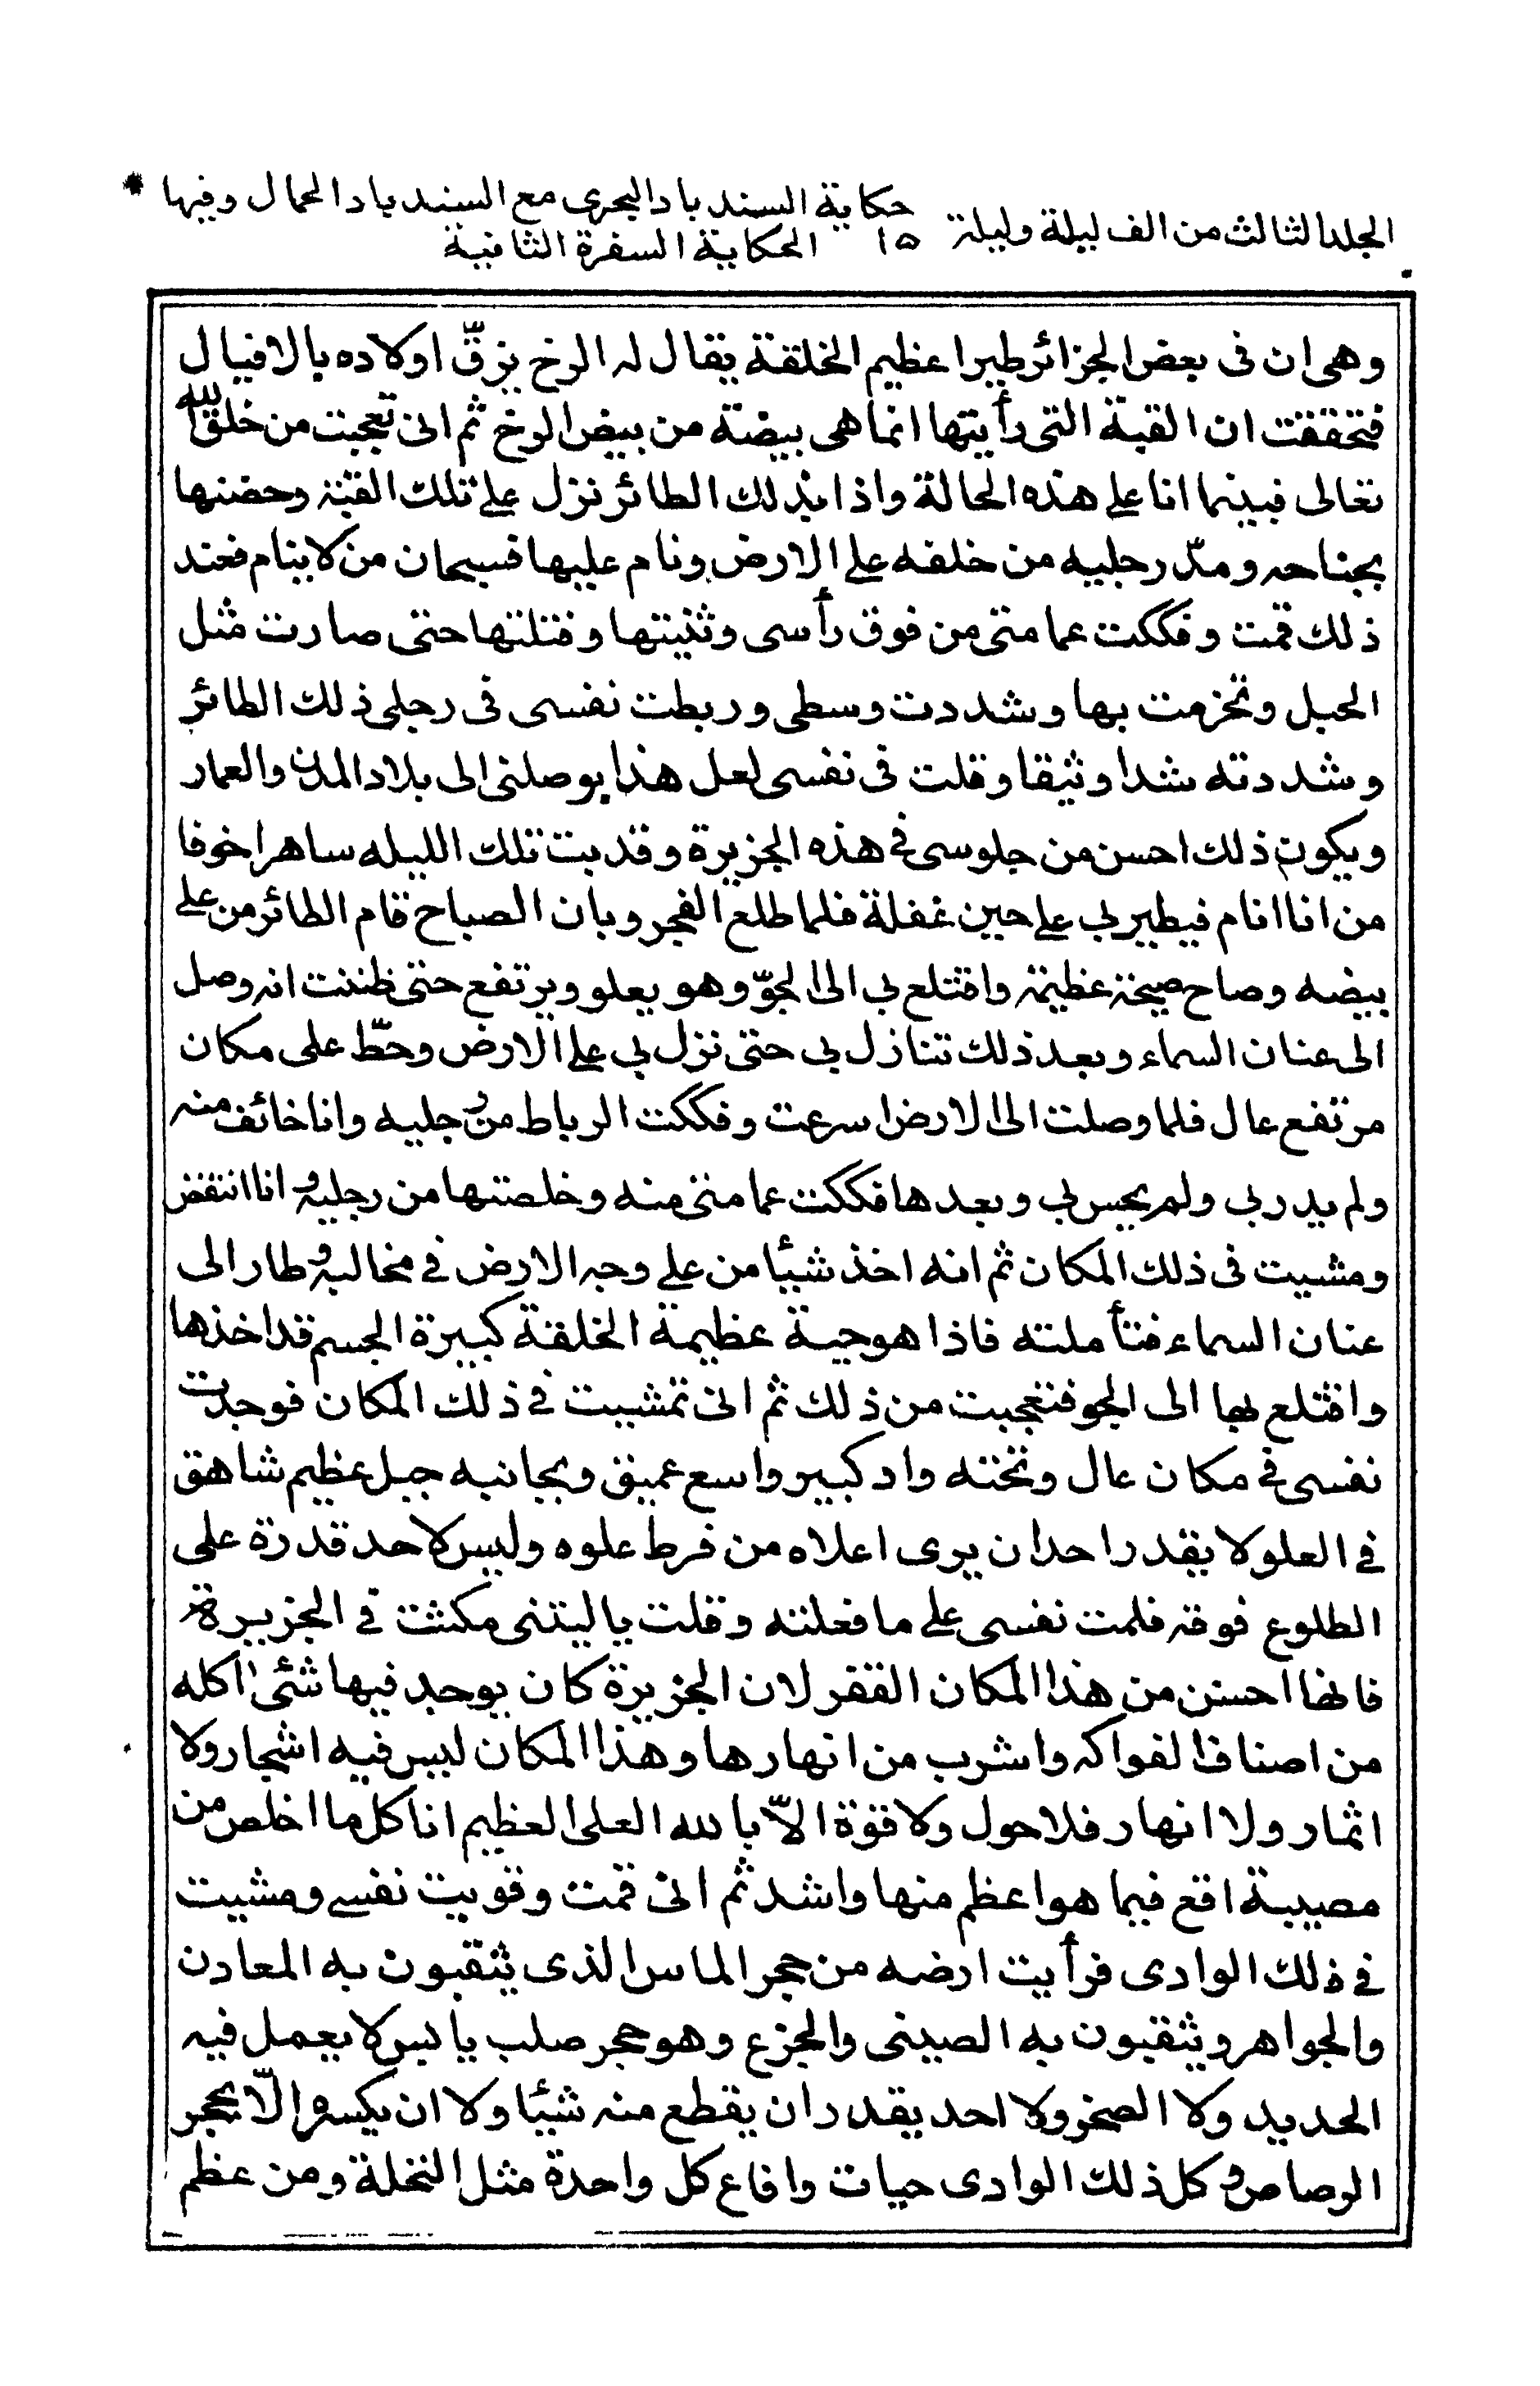 المجلد الثالث من الف ليلة وليلة ١٥ حكاية السندباد البحري مع السندباد الحمال وفيها
الحكاية السفرة الثانية
وهى ان فى بعض الجزائر طيرا عظيم الخلقة يقال له الرخ يزقّ اولاده بالافيال
فتحققت ان القبة التى رأيتها انما هى بيضة من بيض الرخ ثم انى تعجبت من خلق الله
تعالى فبينما انا على هذه الحالة واذا بذلك الطائر نزل على تلك القبة وحضنها
بجناحه ومدّ رجليه من خلفه على الارض ونام عليها فسبحان من لا ينام فعند
ذلك قمت وفككت عمامتى من فوق رأسى وثنيتها وفتلتها حتى صارت مثل
الحبل وتحزمت بها وشددت وسطى وربطت نفسى فى رجلى ذلك الطائر
وشددته شدا وثيقا وقلت فى نفسى لعل هذا يوصلنى الى بلاد المدن والعمار
ويكون ذلك احسن من جلوسى فى هذه الجزيرة وقد بت تلك الليله ساهرا خوفا
من انا انام فيطير بى على حين غفلة فلما طلع الفجر وبان الصباح قام الطائر من على
بيضه وصاح صيحة عظيمة واقتلع بى الى الجوّ وهو يعلو ويرتفع حتى ظننت انه وصل
الى عنان السماء وبعد ذلك تنازل بى حتى نزل بى على الارض وحطّ على مكان
مرتفع عال فلما وصلت الى الارض اسرعت وفككت الرباط من رجليه وانا خائف منه
ولم يدر بى ولم يحس بى وبعدها فككت عمامتى منه وخلصتها من رجليه وانا انتفض
ومشيت فى ذلك المكان ثم انه اخذ شيئا من على وجه الارض فى مخالبه وطار الى
عنان السماء فتأملته فاذا هو حية عظيمة الخلقة كبيرة الجسم قد اخذها
واقتلع بها الى الجو فتعجبت من ذلك ثم انى تمشيت فى ذلك المكان فوجدت
نفسى فى مكان عال وتحته واد كبير واسع عميق وبجانبه جبل عظيم شاهق
فى العلو لا يقدر احد ان يرى اعلاه من فرط علوه وليس لاحد قدرة على
الطلوع فوقه فلمت نفسى على ما فعلته وقلت يا ليتنى مكثت فى الجزيرة
فانها احسن من هذا المكان القفر لان الجزيرة كان يوجد فيها شئ آكله
من اصناف الفواكه واشرب من انهارها وهذا المكان ليس فيه اشجار ولا
اثمار ولا انهار فلا حول ولا قوة الّا بالله العلى العظيم انا كل ما اخلص من
مصيبة اقع فيما هو اعظم منها واشد ثم انى قمت وقويت نفسى ومشيت
فى ذلك الوادى فرأيت ارضه من حجر الماس الذى يثقبون به المعادن
والجواهر ويثقبون به الصينى والجزع وهو حجر صلب يابس لا يعمل فيه
الحديد ولا الصخر ولا احد يقدر ان يقطع منه شيئا ولا ان يكسره الّا بحجر
الرصاص وكل ذلك الوادى حيات وافاع كل واحدة مثل النخلة ومن عظم